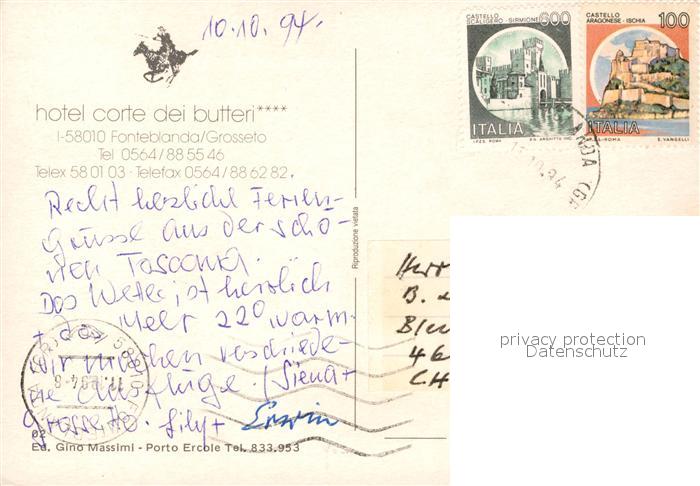 10.10.94.
CASTELLO SCALIGERO - SIRMIONE 600
ITALIA
I.P.Z.S. ROMA
CASTELLO ARAGONESE - ISCHIA 100
ITALIA
I.P.Z.S. ROMA E. VANGELLI
hotel corte dei butteri****
I-58010 Fonteblanda/Grosseto
Tel 0564/88 55 46
Telex 58 01 03 · Telefax 0564/88 62 82.
Recht herzliche Ferien-
Grüsse aus der schö-
nen Toscana.
Das Wetter ist herrlich
+ das Meer 22° warm.
Wir machen verschiede-
ne Ausflüge. (Siena +
Grosseto. Lily +
Erwin
Riproduzione vietata
Herr
B.
4
CH
privacy protection
Datenschutz
Ed. Gino Massimi - Porto Ercole Tel. 833.953